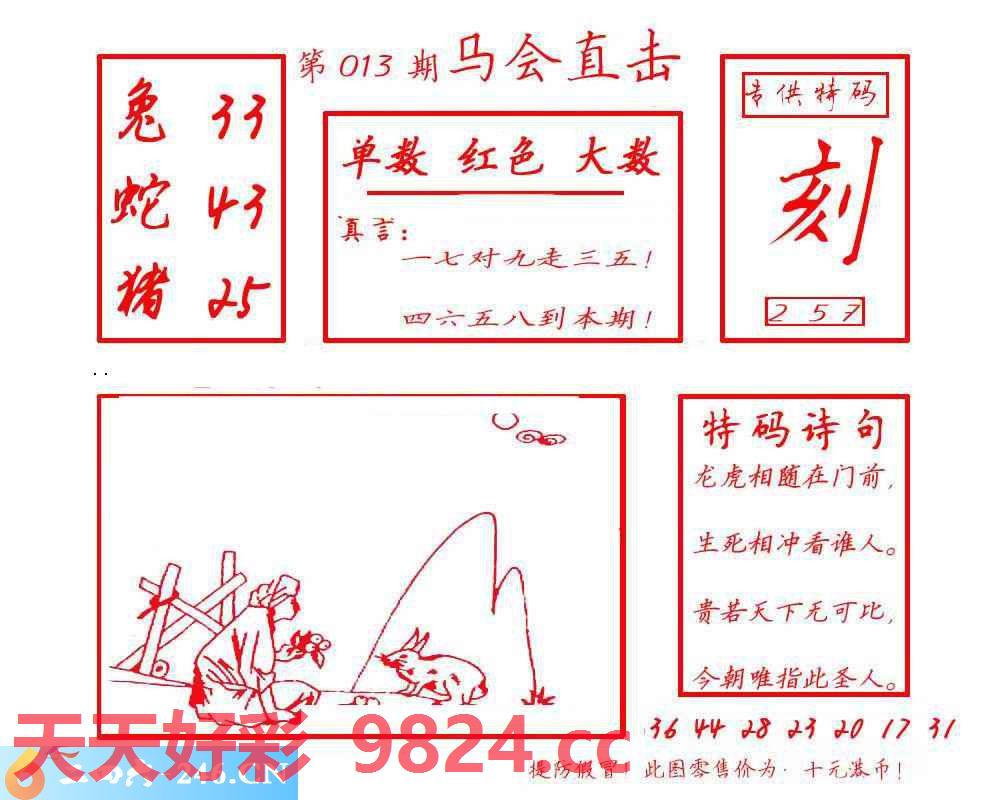 第 013 期 马会直击
兔 33
蛇 43
猪 25
单数 红色 大数
真言:
一七对九走三五!
四六五八到本期!
专供特码
刻
2 5 7
特码诗句
龙虎相随在门前,
生死相冲看谁人。
贵若天下无可比,
今朝唯指此圣人。
36 44 28 23 20 17 31
天天好彩 9824.cc
246.CN
提防假冒! 此图零售价为·十元港币!